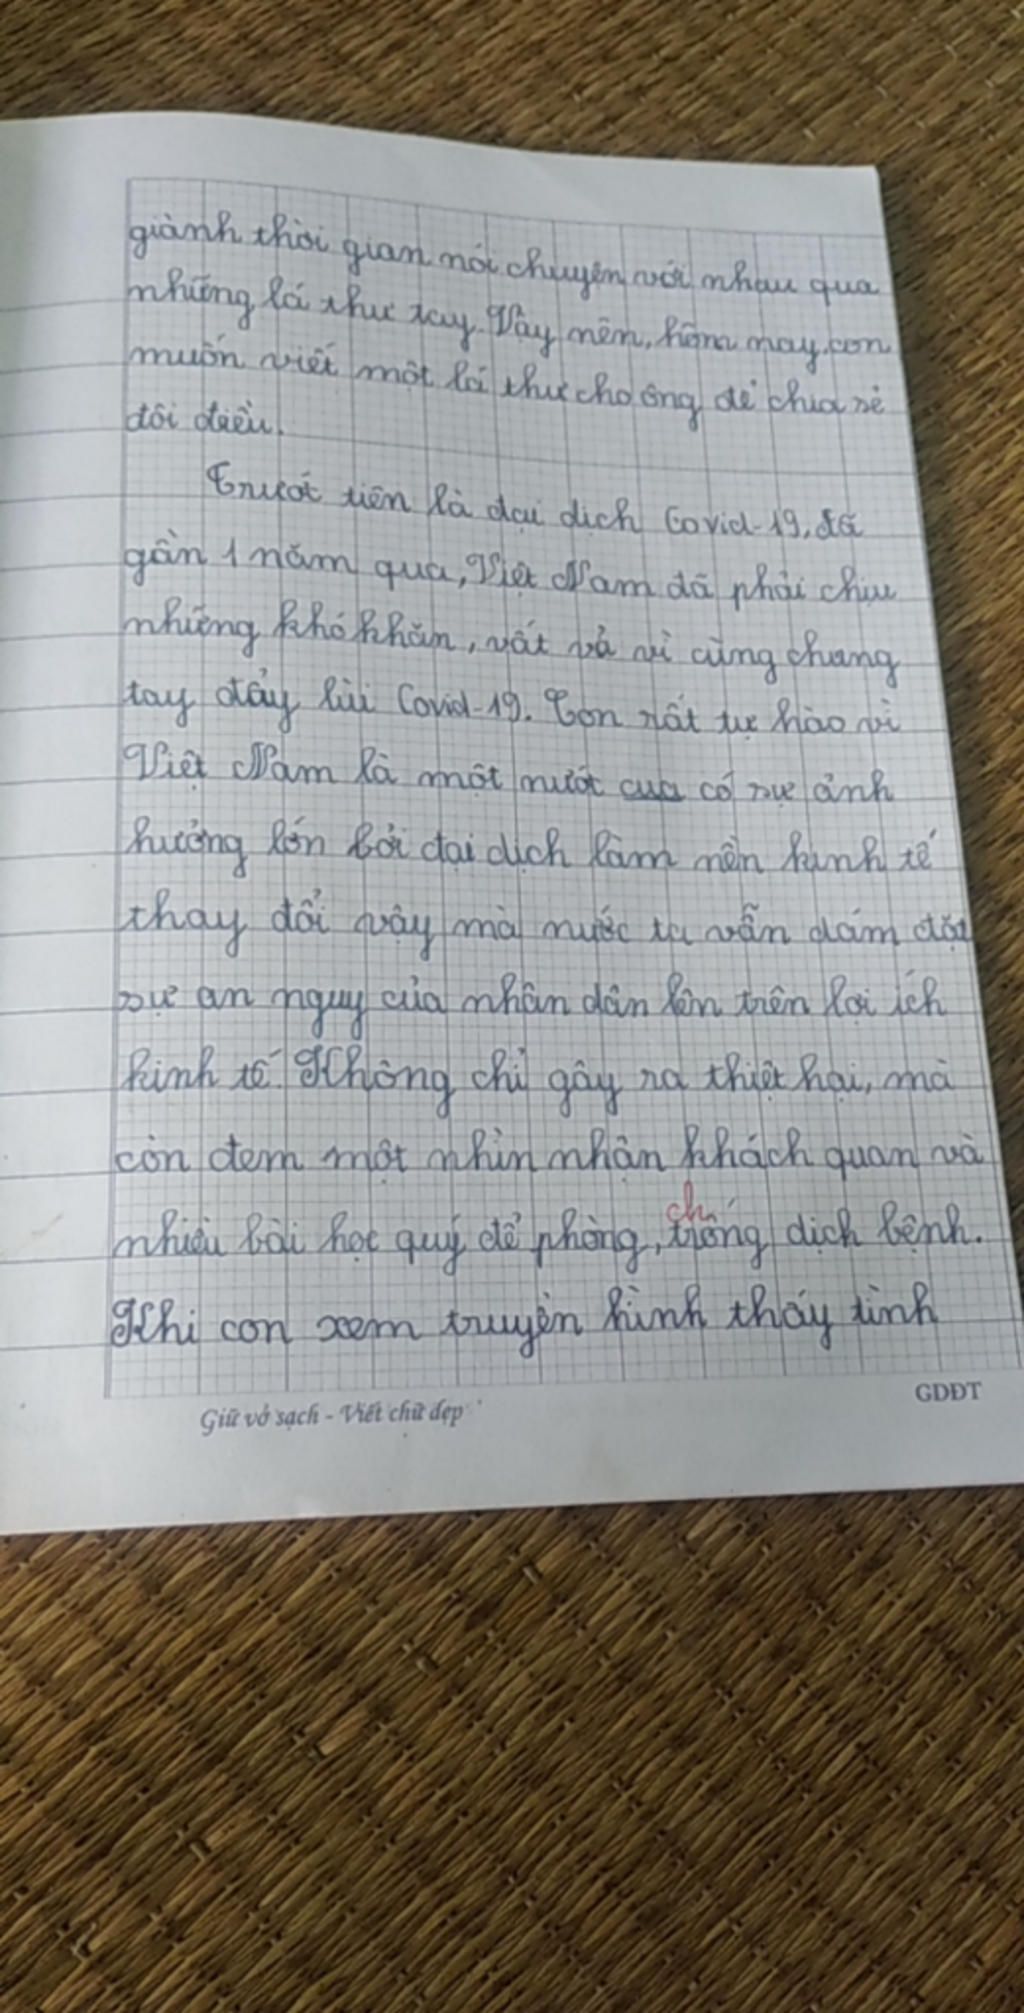 giành thời gian nói chuyện với nhau qua
những lá thư tay. Vậy nên, hôm nay, con
muốn viết một lá thư cho ông để chia sẻ
đôi điều.
Trước tiên là đại dịch Covid-19, đã
gần 1 năm qua, Việt Nam đã phải chịu
những khó khăn, vất vả vì cùng chung
tay đẩy lùi Covid-19. Con rất tự hào vì
Việt Nam là một nước có sự ảnh
hưởng lớn bởi đại dịch làm nền kinh tế
thay đổi vậy mà nước ta vẫn dám đặt
sự an nguy của nhân dân lên trên lợi ích
kinh tế. Không chỉ gây ra thiệt hại, mà
còn đem một nhìn nhận khách quan và
ch
nhiều bài học quý để phòng, trống dịch bệnh.
Khi con xem truyền hình thấy tình
Giữ vở sạch - Viết chữ đẹp
GDĐT